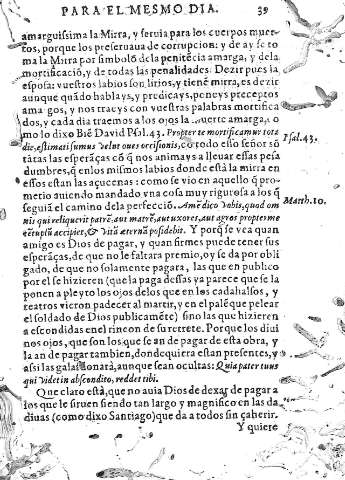 PARA EL MESMO DIA. 39
amarguissima la Mirra, y seruia para los cuerpos muer-
tos, porque los preseruaua de corrupcion: y de ay se to
ma la Mirra por simbolo dela penitẽcia amarga, y dela
mortificació, y de todas las penalidades. Dezir pues la
esposa: vuestros labios son lirios, y tiené mirra, es dezir
aunque quãdo hablays, y predicays, poneys preceptos
amargos, y nos traeys con vuestras palabras mortifica
dos, y cada dia traemos a los ojos la muerte amarga, o
mo lo dixo Bié David Psal. 43. Propter te mortificamur tota
die, estimati sumus velut oues occisionis, có todo esso señor só
tãtas las esperãças có q nos animays a lleuar essas pesa
dumbres, q enlos mismos labios donde está la mirra en
essos estan las açucenas: como se vio en aquello q pro-
metio auiendo mandado vna cosa muy rigurosa a los q
seguiã el camino dela perfecció. Amé dico vobis, quod om
nis qui reliquerit patré, aut matré, aut uxores, aut agros propter me
cétuplũ accipiet, & vitã æternã possidebit. Y porq se vea quan
amigo es Dios de pagar, y quan firmes puede tener sus
esperãças, de que no le faltara premio, oy se da por obli
gado, de que no solamente pagara, las que en publico
por el se hizieren (que la paga dessas ya parece que se la
ponen a pleyto los ojos delos que en los cadahalsos, y
teatros vieron padecer al martir, y en el palẽque pelear
el soldado de Dios publicamẽte) sino las que hizieren
a escondidas enel rincon de su retrete. Porque los diui
nos ojos, que son los que se an de pagar de esta obra, y
la an de pagar tambien, dondequiera estan presentes, y
assi las galardonará, aunque sean ocultas: Quia pater tuus
qui videt in abscondito, reddet tibi.
Que claro está, que no auia Dios de dexar de pagar a
los que le siruen siendo tan largo y magnifico en las da
diuas (como dixo Santiago) que da a todos sin çaherir.
Y quiere
Psal. 43.
Matth. 10.